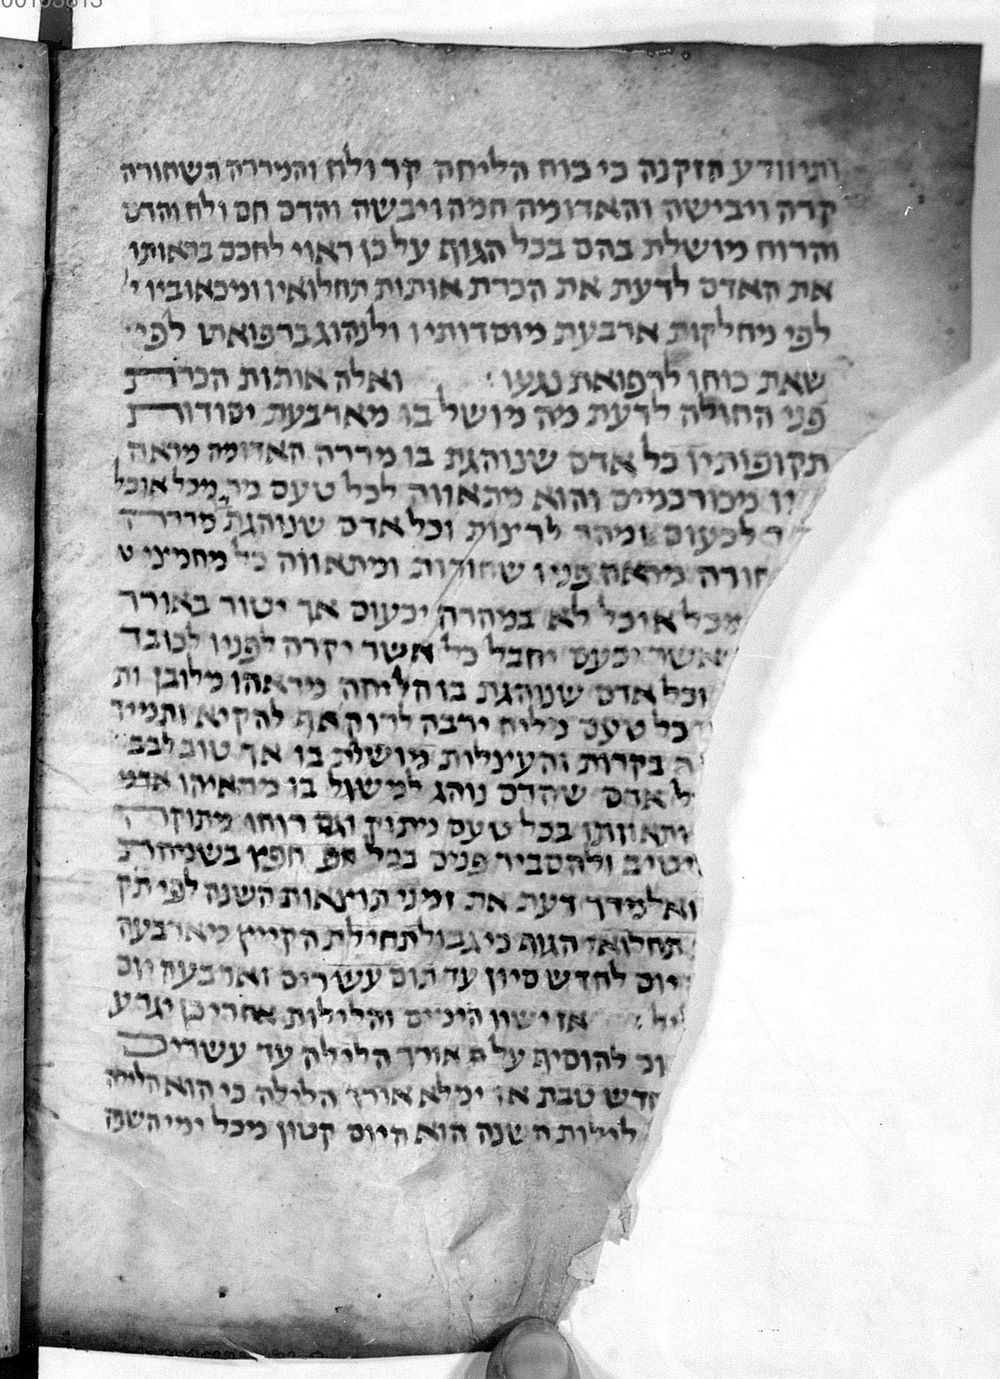 ותיוודע הזקנה כי כוח הליחה קר ולח והמררה השחורה
קרה ויבישה והאדומה חמה ויבשה והדם חם ולח והדם
והרוח מושלת בהם בכל הגוף על כן ראוי לחכם בראותו
את האדם לדעת את הכרת אותות תחלואיו ומכאוביו
לפי מחלקות ארבעת מוסדותיו ולנהוג ברפואתו לפי
שאת כוחו לרפואת נגעו : ואלה אותות הכרת
פני החולה לדעת מה מושל בו מארבעת יסודות
תקופותיו כל אדם שנוהגת בו מררה האדומה מראה
מכורכמים והוא מתאווה לכל טעם מר מכל אוכל
לכעוס ומהר לריצות וכל אדם שנוהגת מררה
חורה מראה פניו שחורות ומתאווה כל מחמיצי
מכל אוכל לא במהרה יכעוס אך יטור באורך
אשר יכעס יחבל כל אשר יקרה לפניו לכובד
וכל אדם שנוהגת בו הליחה מראהו מלובן
כל טעם מליח ירבה לרוק אף להקיא ותמיד
בקרות והעיצלות מושלת בו אך טוב לבב
אדם שהדם נוהג למשול בו מראיהו אדמ
ותאוותו בכל טעם מיתוק וגם רוחו מתוקה
יטיב ולהסביר פנים בכל חפץ בשמחת
ואלמדך דעת את זמני תוצאות השנה לפי
תחלואי הגוף כי גבול תחילת הקייץ מארבעה
יום לחדש סיון עד תום עשרים וארבעה יום
אז ישוו הימים והלילות אחרי כן יגרע
להוסיף על אורך הלילה עד עשרים
חדש טבת אז ימלא אורך הלילה כי הוא הלילה
לילות השנה הוא היום קטון מכל ימי השנה